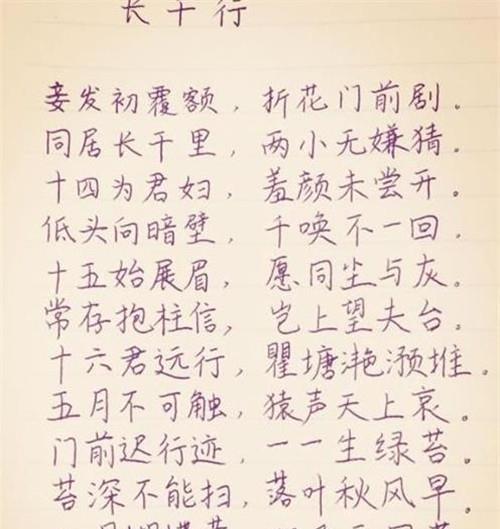 长干行
妾发初覆额，折花门前剧。
同居长干里，两小无嫌猜。
十四为君妇，羞颜未尝开。
低头向暗壁，千唤不一回。
十五始展眉，愿同尘与灰。
常存抱柱信，岂上望夫台。
十六君远行，瞿塘滟滪堆。
五月不可触，猿声天上哀。
门前迟行迹，一一生绿苔。
苔深不能扫，落叶秋风早。